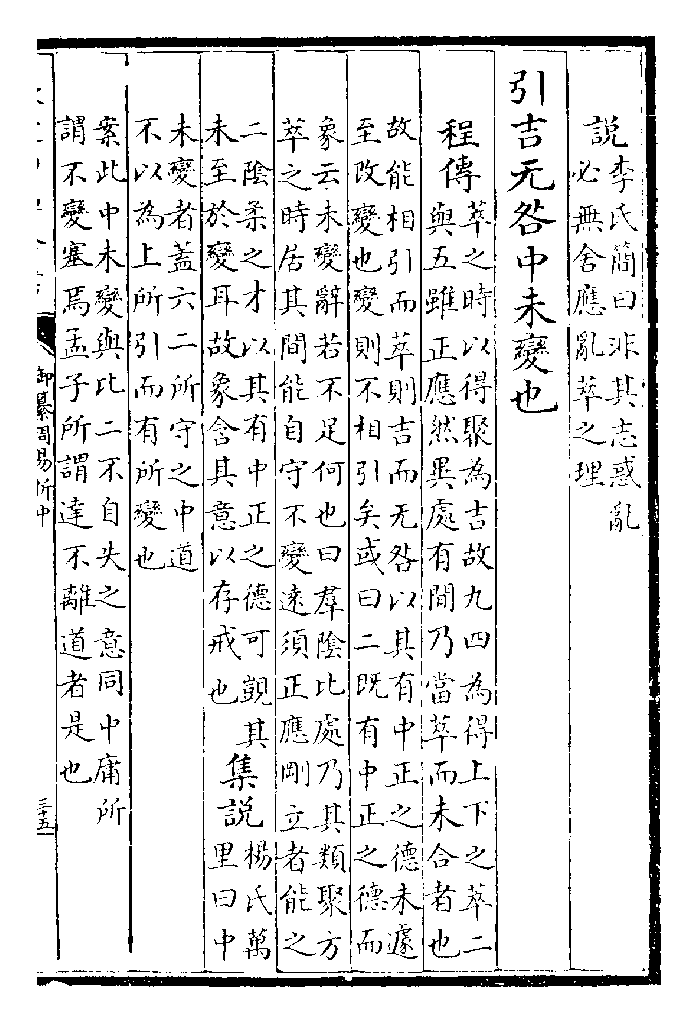 説李氏簡曰非其志惑亂
必無舍應亂萃之理
引吉无咎中未變也
程傳萃之時以得聚為吉故九四為得上下之萃二
與五雖正應然異處有間乃當萃而未合者也
故能相引而萃則吉而无咎以其有中正之德未遽
至改變也變則不相引矣或曰二既有中正之德而
象云未變辭若不足何也曰羣陰比處乃其類聚方
萃之時居其間能自守不變遠須正應剛立者能之
二陰柔之才以其有中正之德可覬其
未至於變耳故象含其意以存戒也
集説楊氏萬
里曰中
未變者蓋六二所守之中道
不以為上所引而有所變也
案此中未變與比二不自失之意同中庸所
謂不變塞焉孟子所謂達不離道者是也
御纂周易折中
三十五